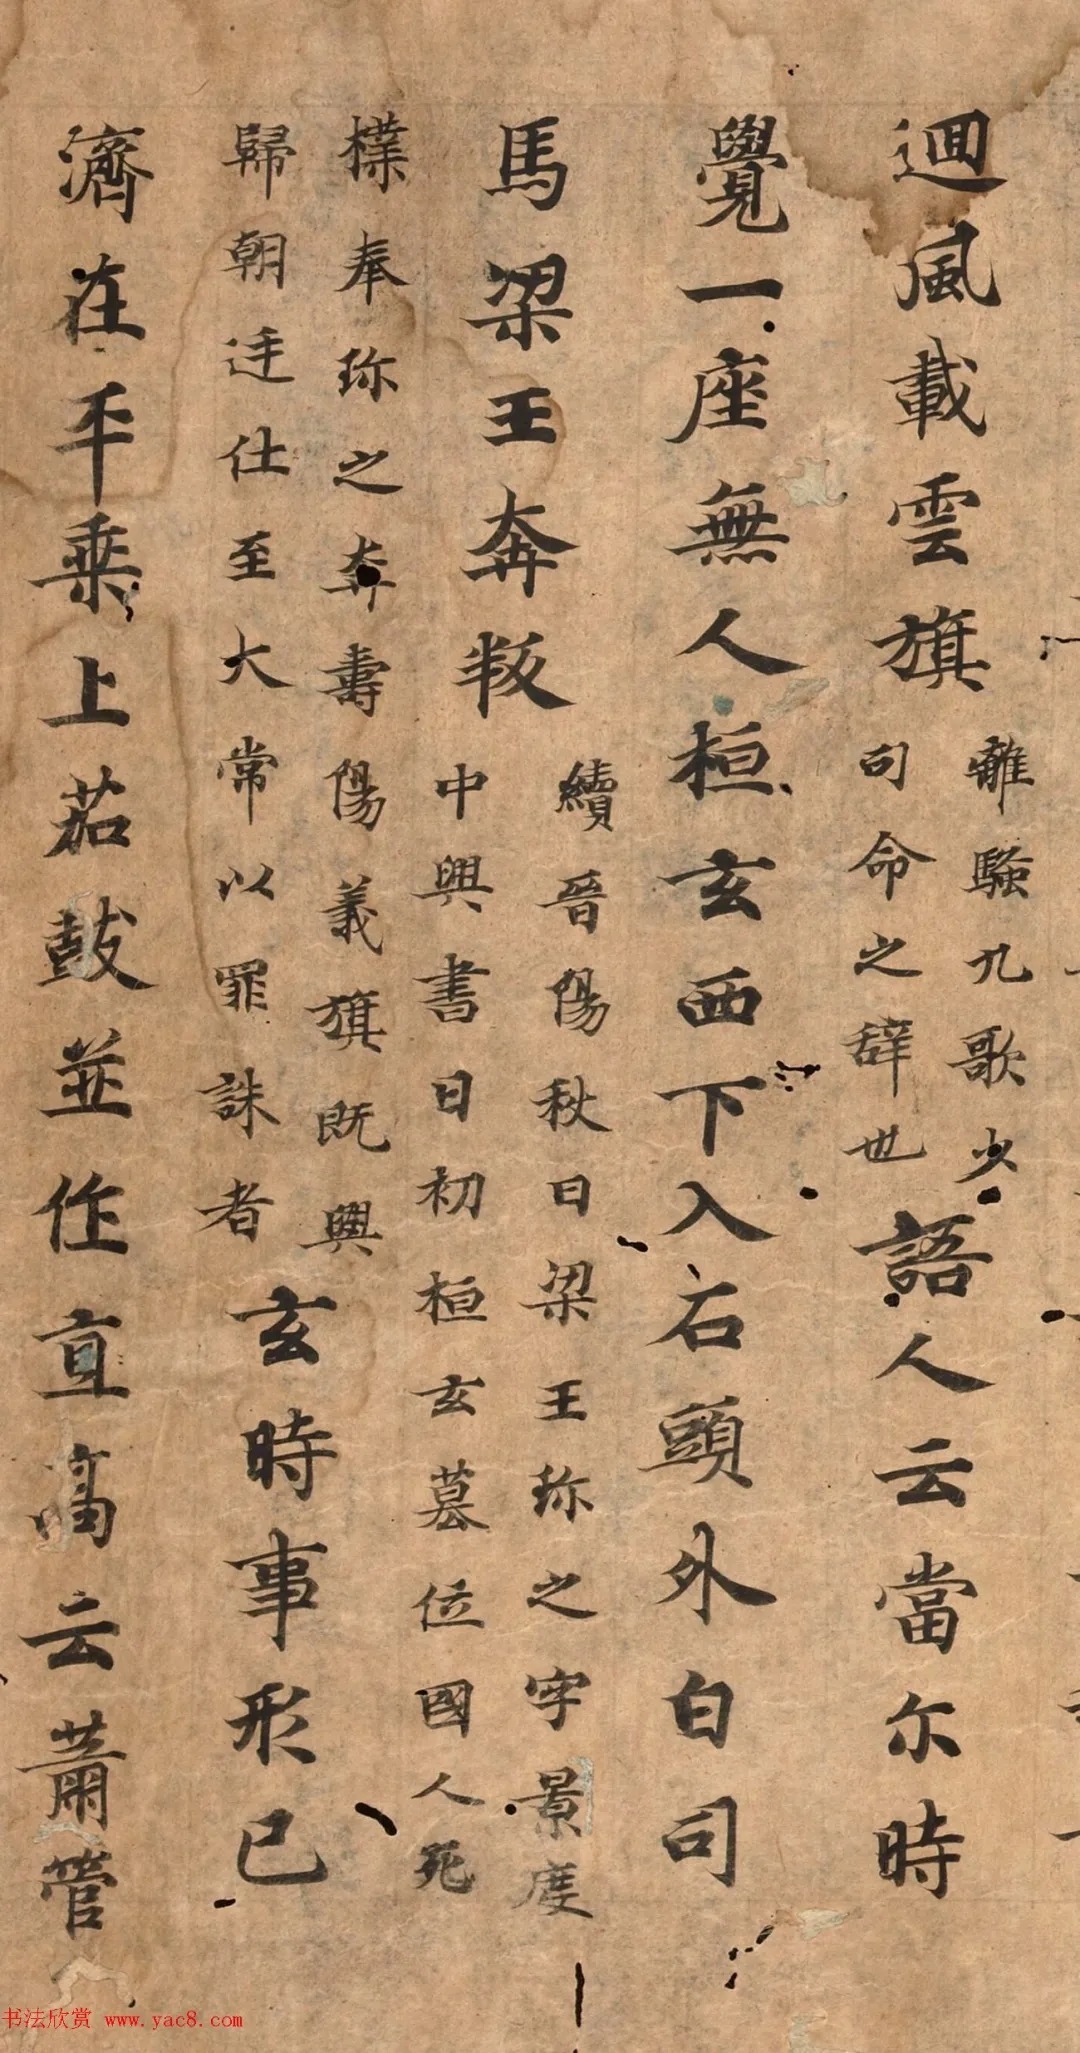 迴風載雲旗
離騷九歌少
司命之辞也
語人云當尔時
覺一座無人桓玄西下入石頭外白司
馬梁王奔叛
續晉陽秋曰梁王珎之字景度
中興書曰初桓玄墓位國人死
樸奉珎之奔壽陽義旗既興
歸朝迋仕至大常以罪誅者
玄時事形已
濟在平乗上茄鼓並作直高云蕭管
书法欣赏 www.yac8.com